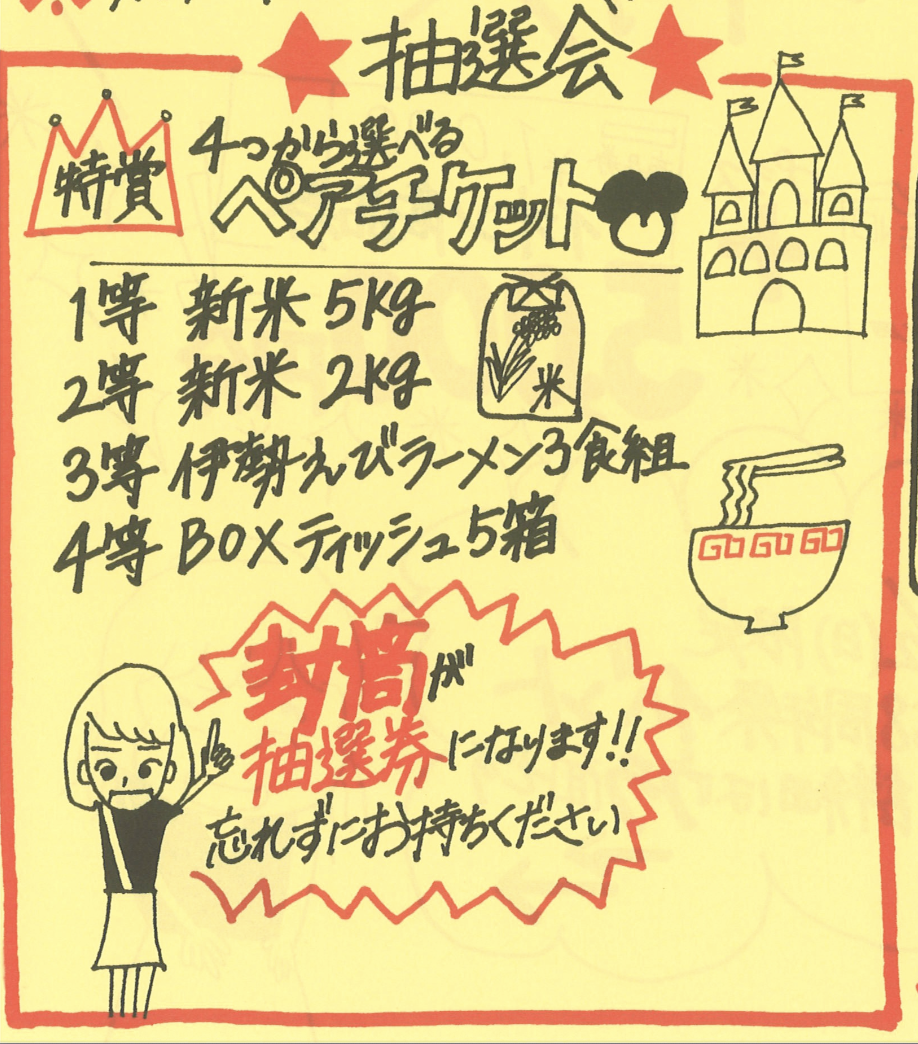 抽選会
特賞
4つから選べる
ペアチケット
1等 新米 5kg
2等 新米 2kg
米
3等 伊勢えびラーメン3食組
4等 BOXティッシュ5箱
封筒が
抽選券になります!!
忘れずにお持ちください